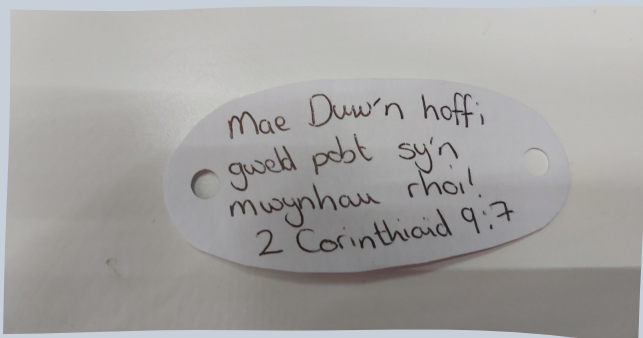 Mae Duw'n hoffi
gweld pobl sy'n
mwynhau rhoi!
2 Corinthiaid 9:7